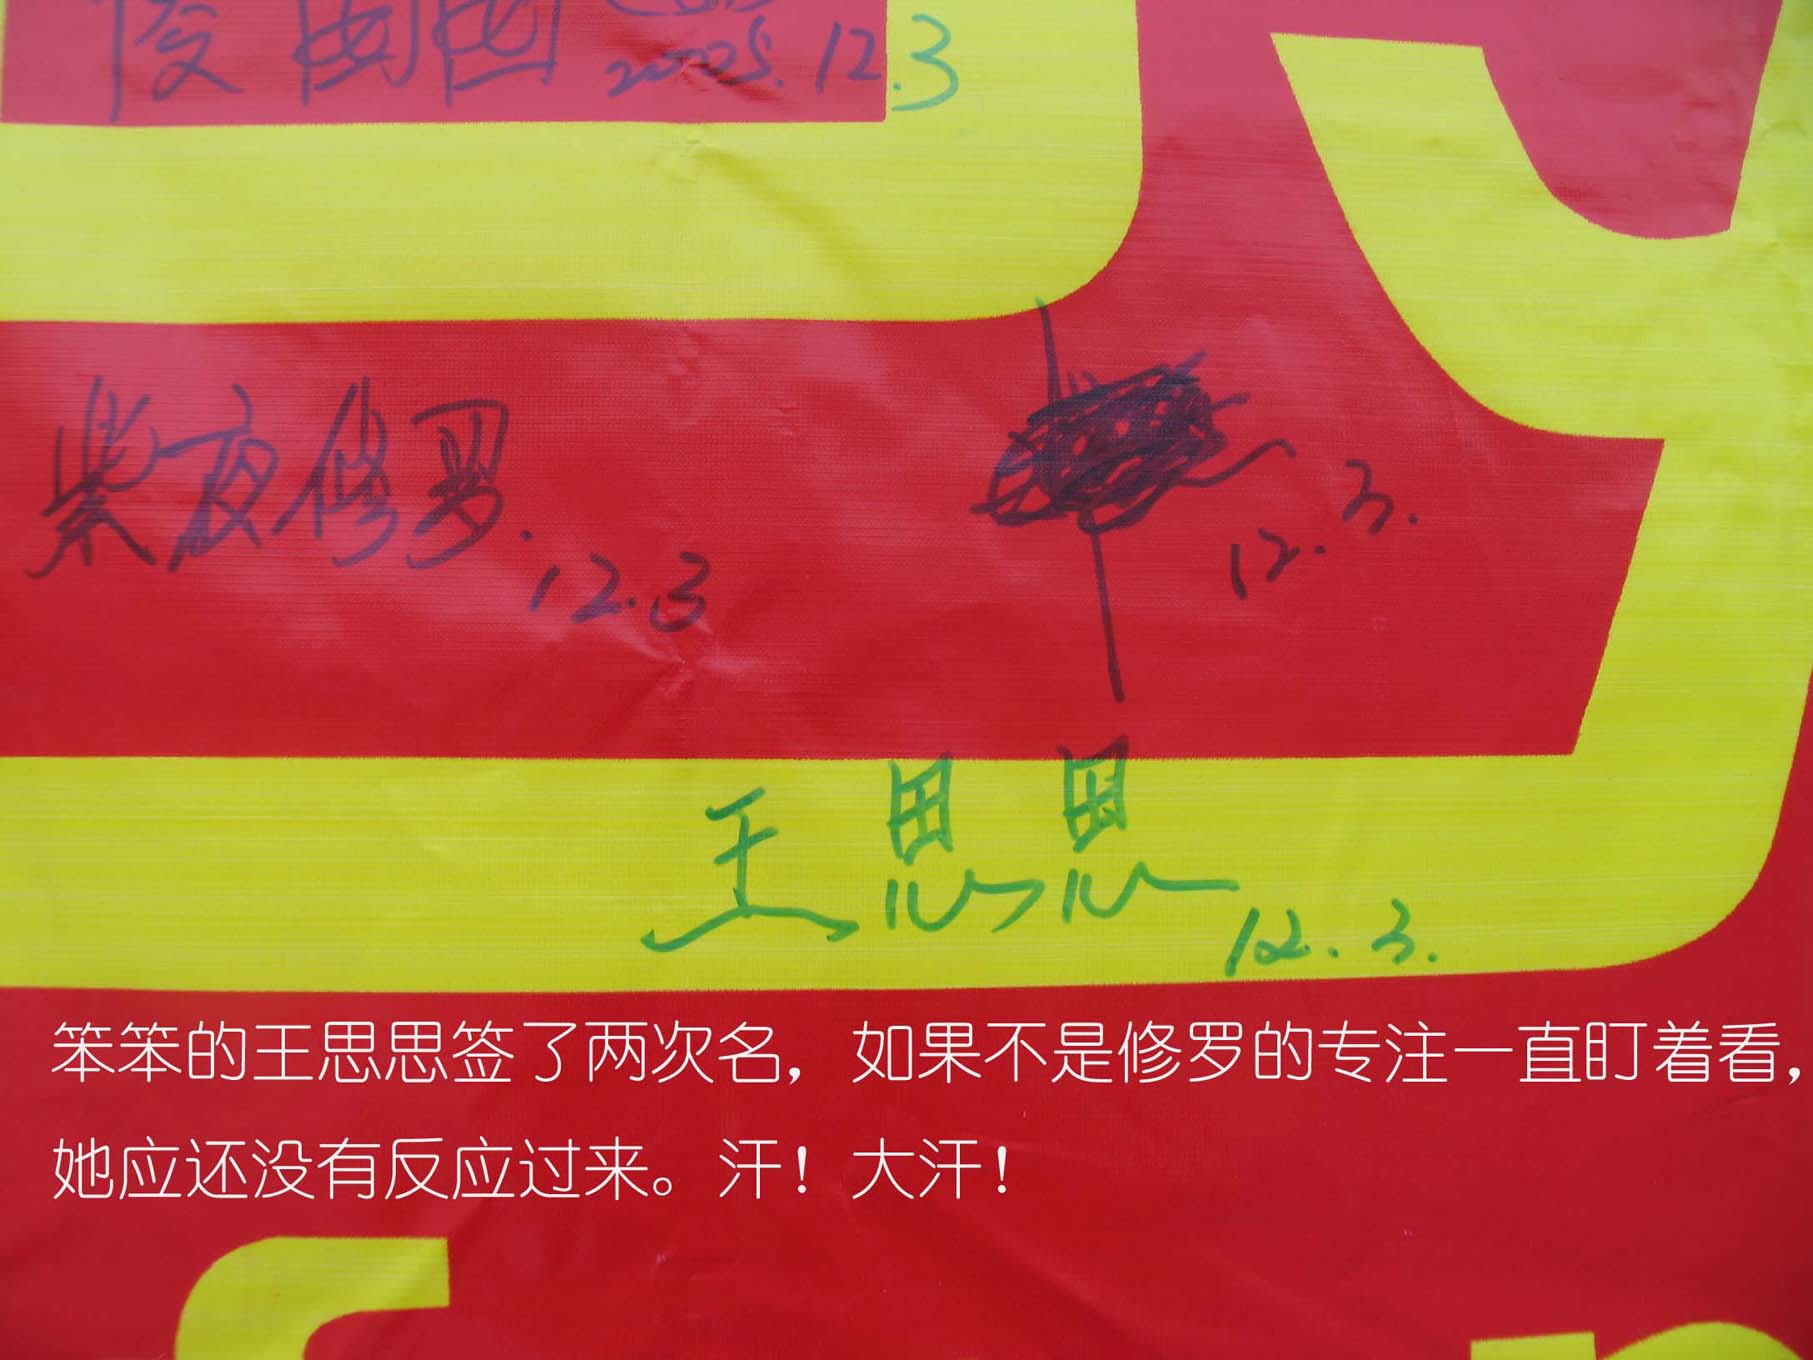 2005.12.3
紫夜修罗.
12.3
12.3.
王思思
12.3.
笨笨的王思思签了两次名，如果不是修罗的专注一直盯着看，
她应还没有反应过来。汗！大汗！